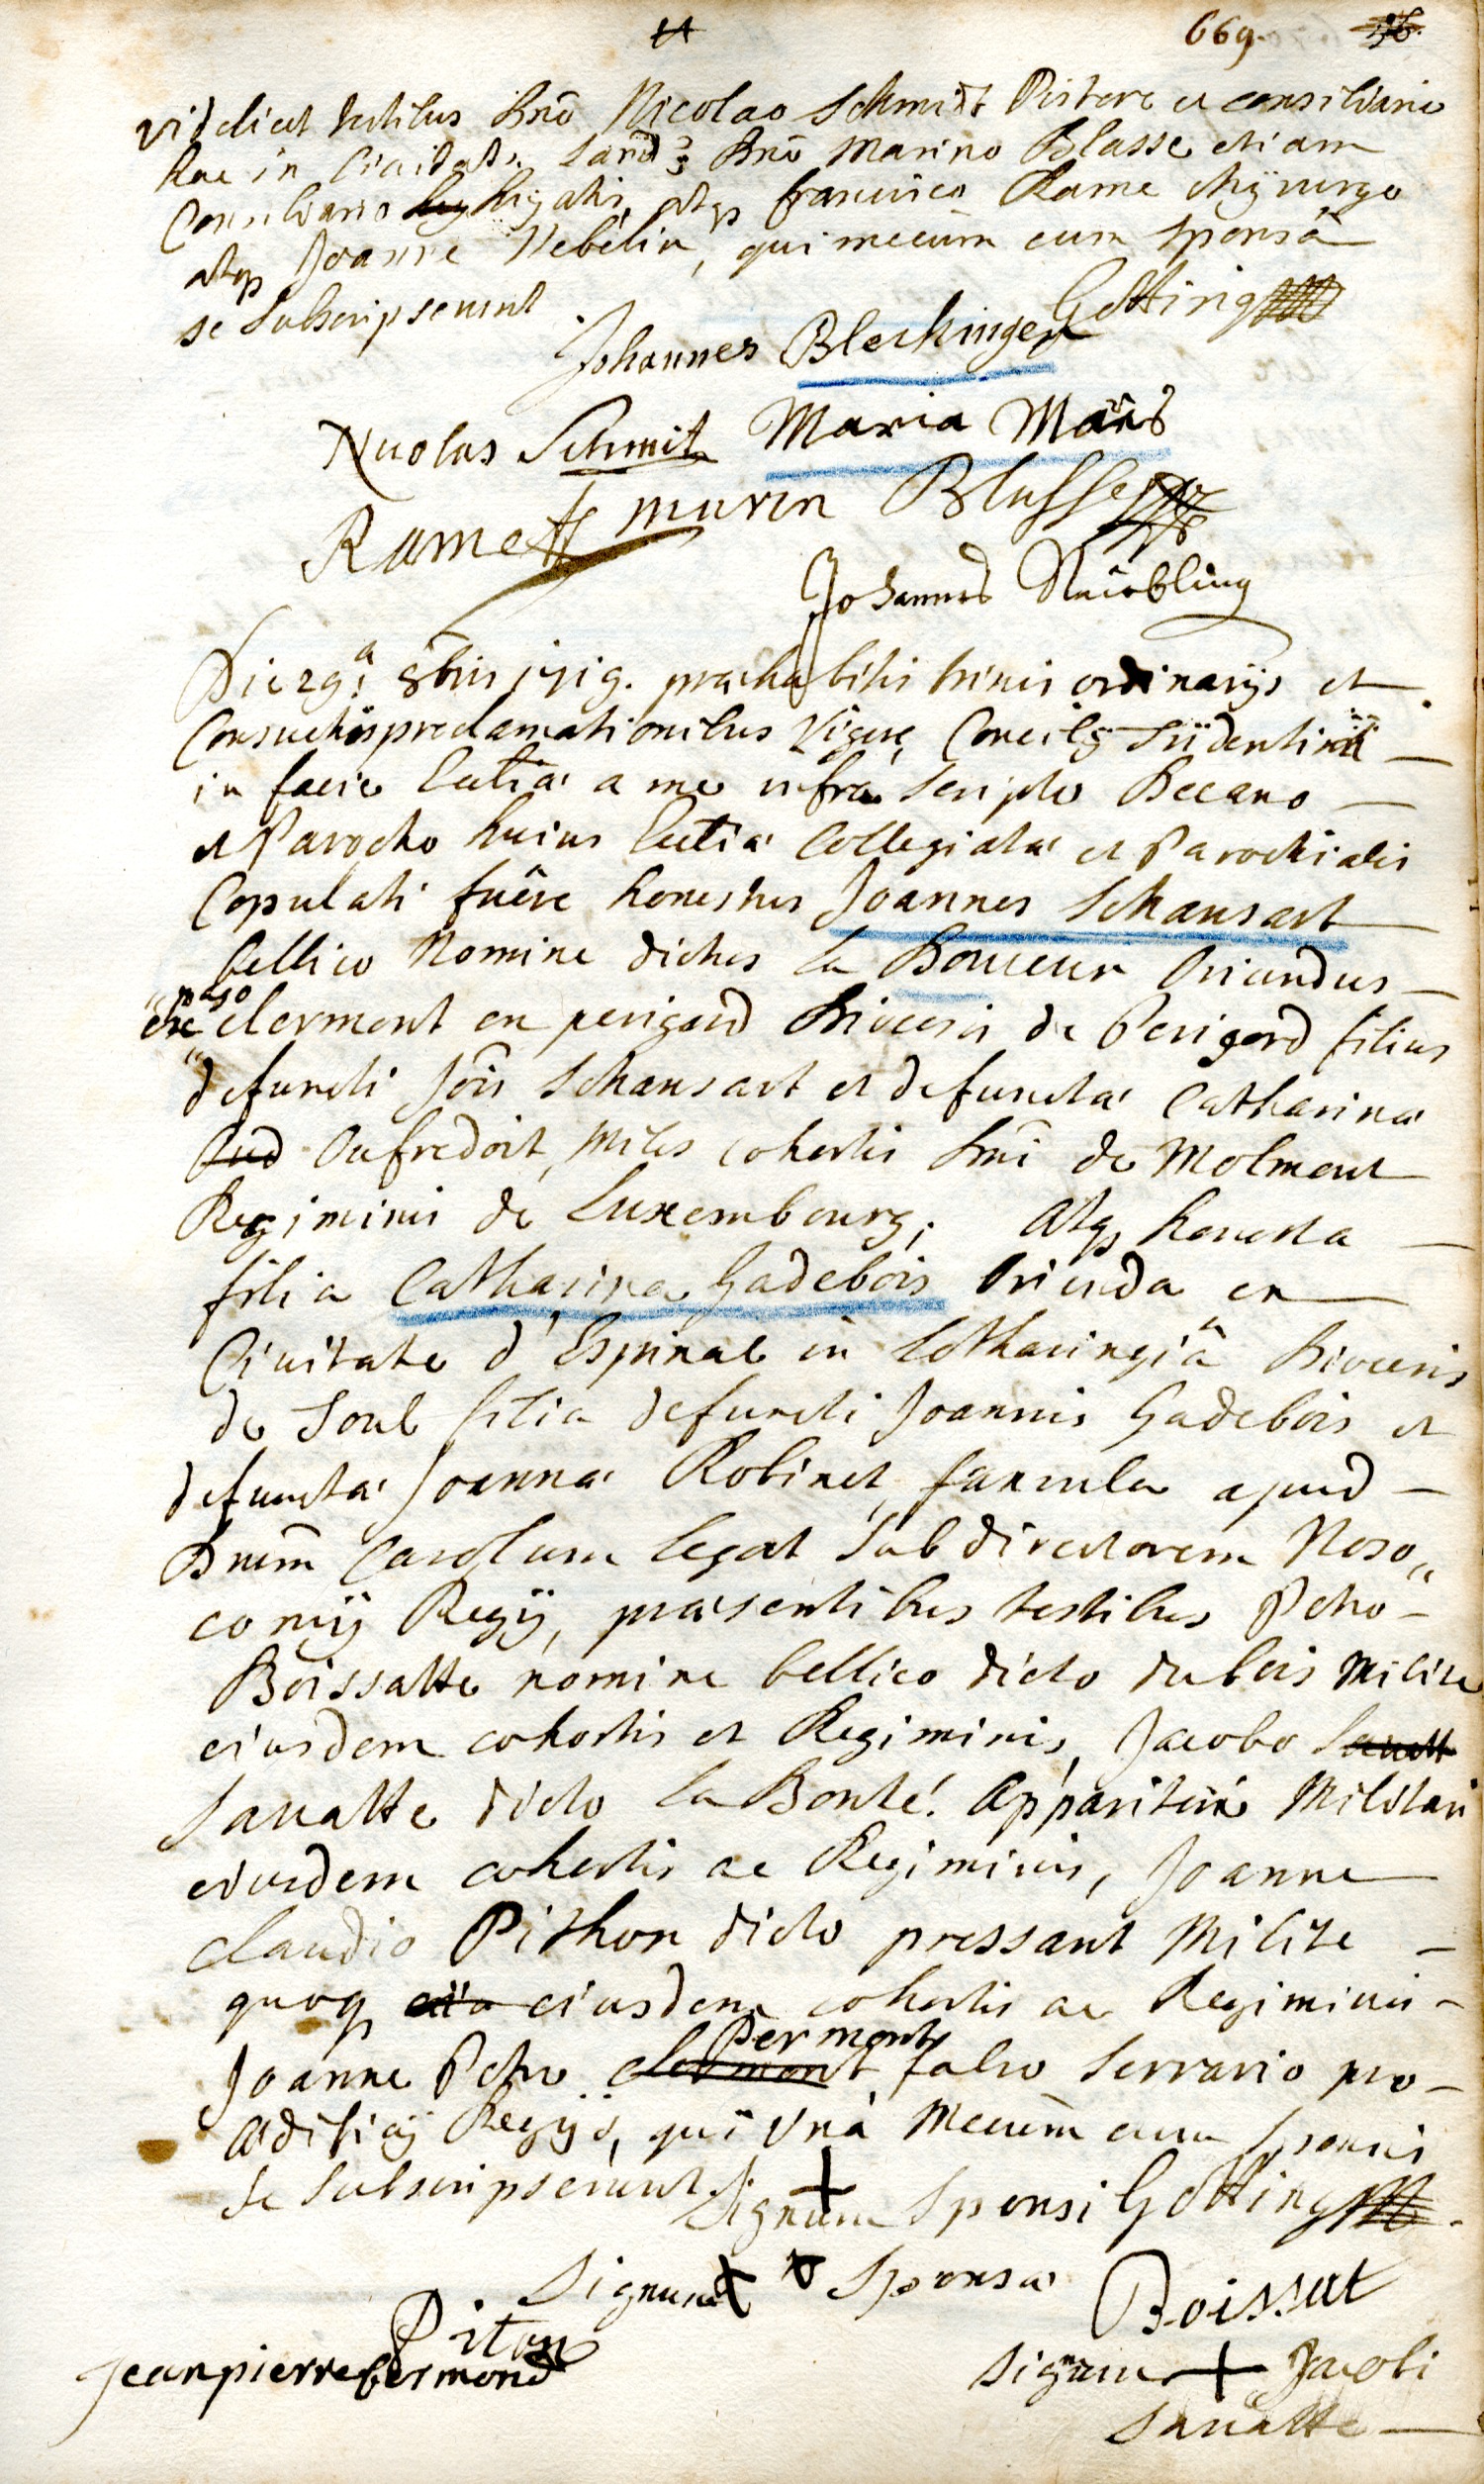 669.
videlicet testibus Dno Nicolao Schmidt Pistore et consiliario
hac in Civitate Dno Marino Blasse etiam
Consiliario atqz francisco Rame chÿrurgo
atqz Joanne Nebelin, qui mecum cum sponsâ
se subscripserunt
Götting
Johannes Blechinger
Nicolas Schmit Maria
Ramett marin Blasse
Johannes
Die 29â 8bris 1719. praehabitis trinis ordinarÿs et
Consuetis proclamationibus vigore Concilÿ Tridentini
in facie Eccliae a me infra scripto Decano
et Parocho huius Eccliae Collegiatae et Parochialis
Copulati fuêre honestus Joannes Schansart
bellico Nomine dictus la Bonueur Oriundus
pago clermont en perigord Dioecesis de Perigord filius
defuncti Jois Schansart et defunctae Catharinae
Oufredoit, Miles cohortis Dni de Molmont
Regiminis de Luxembourg; atqz honesta
filia Catharina Gadebois Oriunda ex
Civitate d'Espinal in Lotharingiâ Dioecesis
de Toul filia defuncti Joannis Gadebois et
defunctae Joannae Robinet famula apud
Dnum Carolum Legat Subdirectorem Noso,,
comÿ Regÿ, praesentibus testibus Petro
Boissatte nomine bellico dicto dubois Milite
eiusdem cohortis et Regiminis, Jacobo
Sauatte dicto la Bonté. Apparitore Militari
eiusdem cohortis ac Regiminis, Joanne
claudio Pithon dicto pressant Milite
quoqz eiusdem cohortis ac Regiminis
Joanne Petro clermont Bermont, fabro serrario pro
aedificÿs Regÿs, qui unà Mecum cum sponsis
se subscripserunt. Signum + sponsi Götting
Signum + sponsae Boissat
Piton
Jeanpierrebermond
signum + Jacobi
Sauatte